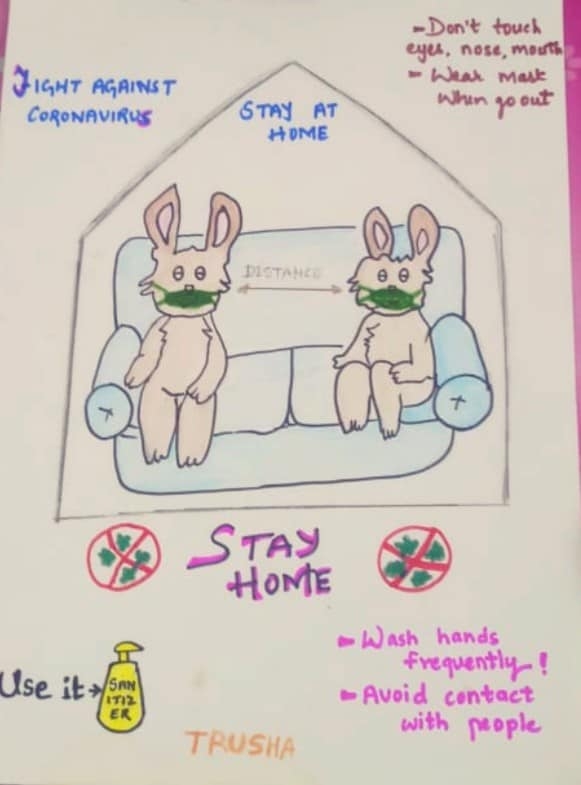 FIGHT AGAINST
CORONAVIRUS
STAY AT
HOME
-Don't touch
eyes, nose, mouth
- Wear mask
when go out
DISTANCE
STAY
HOME
Use it→
SAN
ITIZ
ER
- Wash hands
frequently!
- Avoid contact
with people
TRUSHA